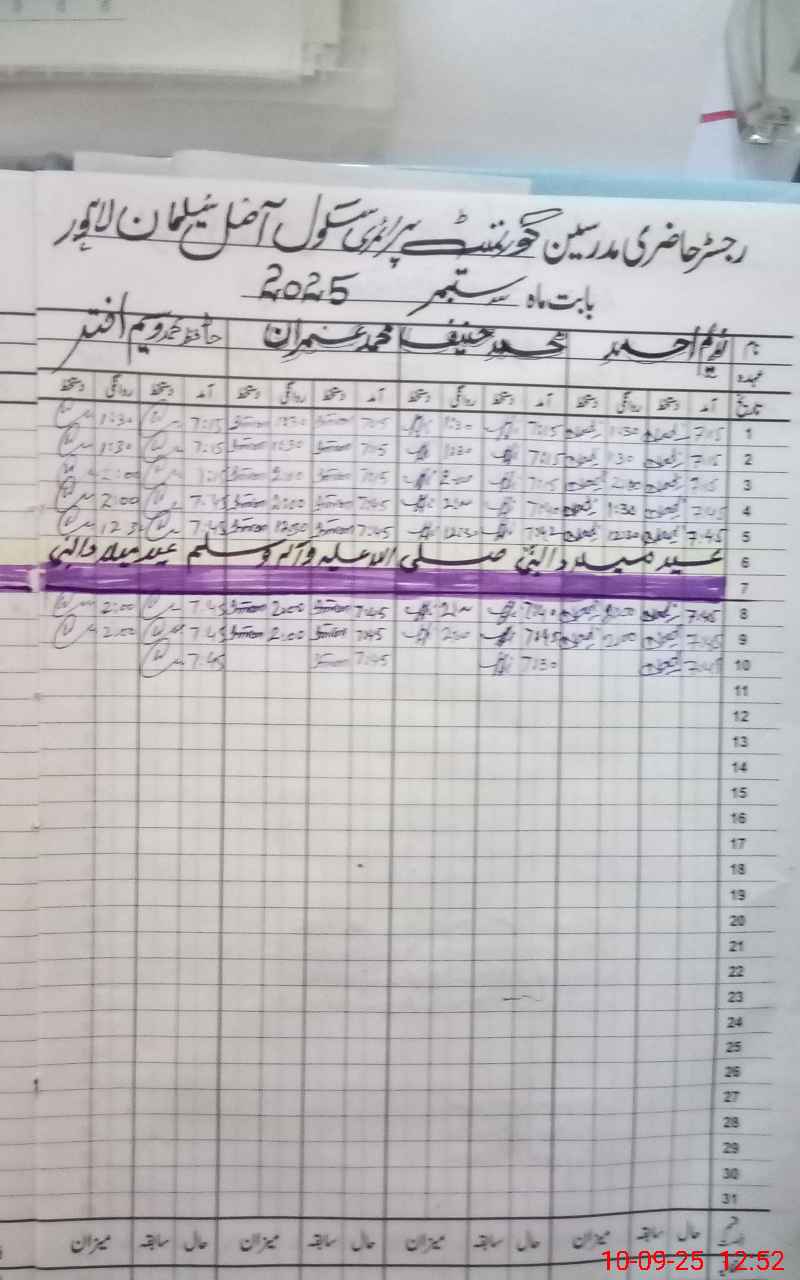 رجسٹر حاضری مدرسین گورنمنٹ پرائمری سکول آصل سلیمان لاہور
بابت ماہ ستمبر 2025
نام احمد محمد حنیف محمد عمران حافظ محمد وسیم افتر
عہدہ
تاریخ آمد دستخط روانگی دستخط آمد دستخط روانگی دستخط آمد دستخط روانگی دستخط آمد دستخط روانگی دستخط
1 7:15 1:30 7:15 1:30 7:15 1:30 7:15 1:30
2 7:15 1:30 7:15 1:30 7:15 1:30 7:15 1:30
3 7:15 2:00 7:15 2:00 7:15 2:00 7:15 2:00
4 7:45 1:30 7:40 2:00 7:45 2:00 7:45 2:00
5 7:45 12:30 7:42 12:30 7:45 12:30 7:45 12:30
6 عید میلاد النبیؐ صلی اللہ علیہ وآلہ وسلم عید میلاد النبی
7
8 7:45 2:00 7:40 2:00 7:45 2:00 7:45 2:00
9 7:45 2:00 7:45 2:00 7:45 2:00 7:45 2:00
10 7:45 7:30 7:45 7:45
11
12
13
14
15
16
17
18
19
20
21
22
23
24
25
26
27
28
29
30
31
حال سابقہ میزان حال سابقہ میزان حال سابقہ میزان حال سابقہ میزان
10-09-25 12:52